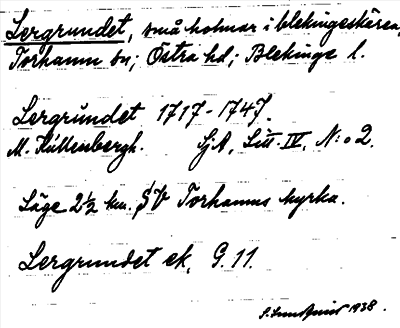 Lergrundet, små holmar i blekingeskären,
Torhamn sn; Östra hd; Blekinge l.
Lergrundet 1717-1747.
M. Källenbergh. SjA, Litt. IV, N:o 2.
Läge 2½ km. SV Torhamns kyrka.
Lergrundet ek. G. 11.
1938.